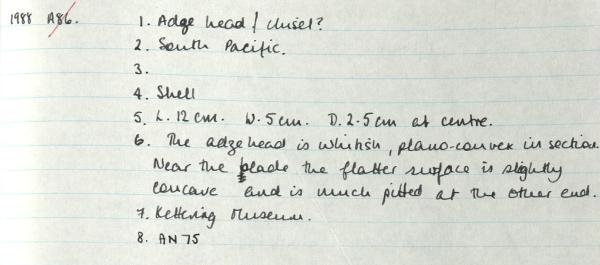 1988 A86. 1. Adge head / chisel?
2. South Pacific.
3.
4. Shell
5. L. 12cm. W. 5cm. D. 2.5cm at centre.
6. The adzehead is whitish, plano-convex in section.
Near the blade the flatter surface is slightly
concave and is much pitted at the other end.
7. Kettering Museum.
8. AN75